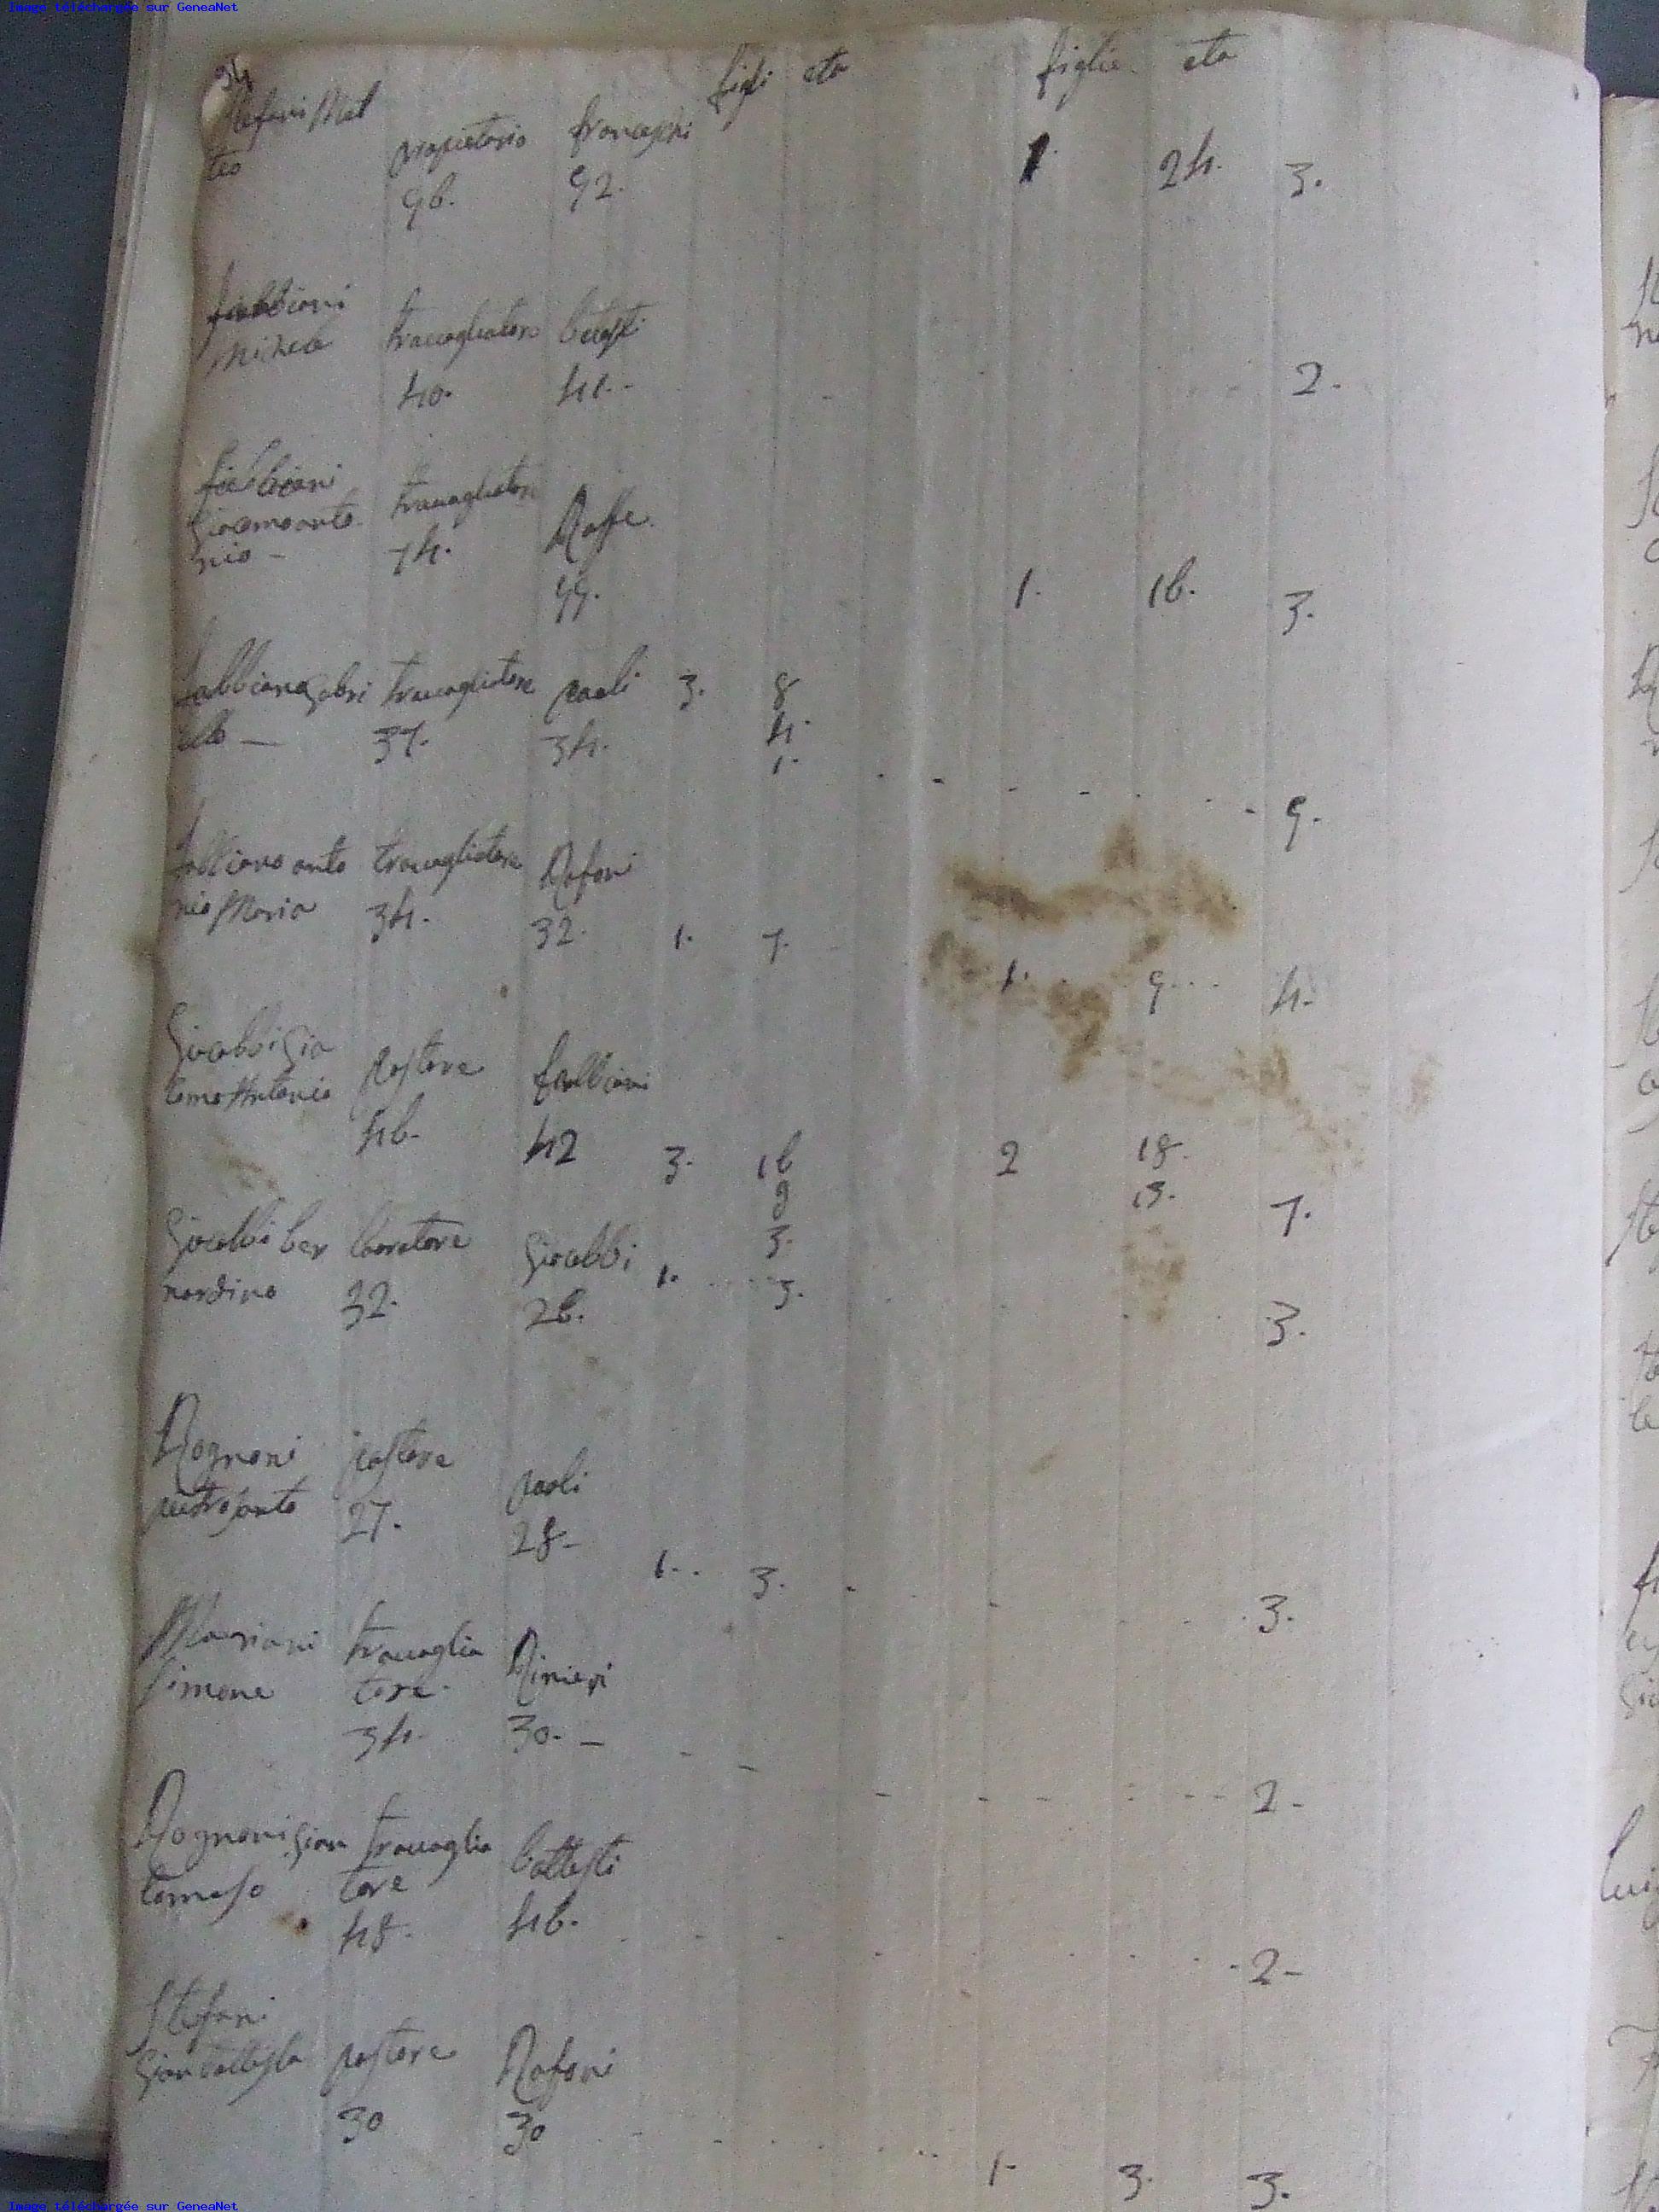 Image téléchargée sur GeneaNet
34
figli eta figlie eta
Stefani Mat
teo
propietario franceschi
96. 92.
1. 24. 3.
fabbiani
travagliatore
40. 41.
2.
fabbiani
Giacomo anto
nio
travagliatore
74.
99.
1. 16. 3.
fabbiano Gabri travagliatore paoli 3. 8
ello 37. 34. 4.
1.
9.
fabbiano anto travagliatore Rafani
nio Maria 34. 32. 1. 7.
1. 9 4.
Giacobbi Gia
como Antonio pastore fabbiani
46. 42 3. 16 2 18.
9 13. 7.
3.
Giacobbi ber laboratore Giacobbi 1. 3.
nardino 32. 26. 3.
Rognoni pastore paoli
pietro santo 27. 28
1. 3. 3.
Mariani travaglia Rinieri
Simone tore
34. 30.
2
Rognoni Gian travaglia battesti
tomaso tore
48. 46.
2
Stefani
Gian battista pastore Rafani
30 30
1 3. 3.
Image téléchargée sur GeneaNet